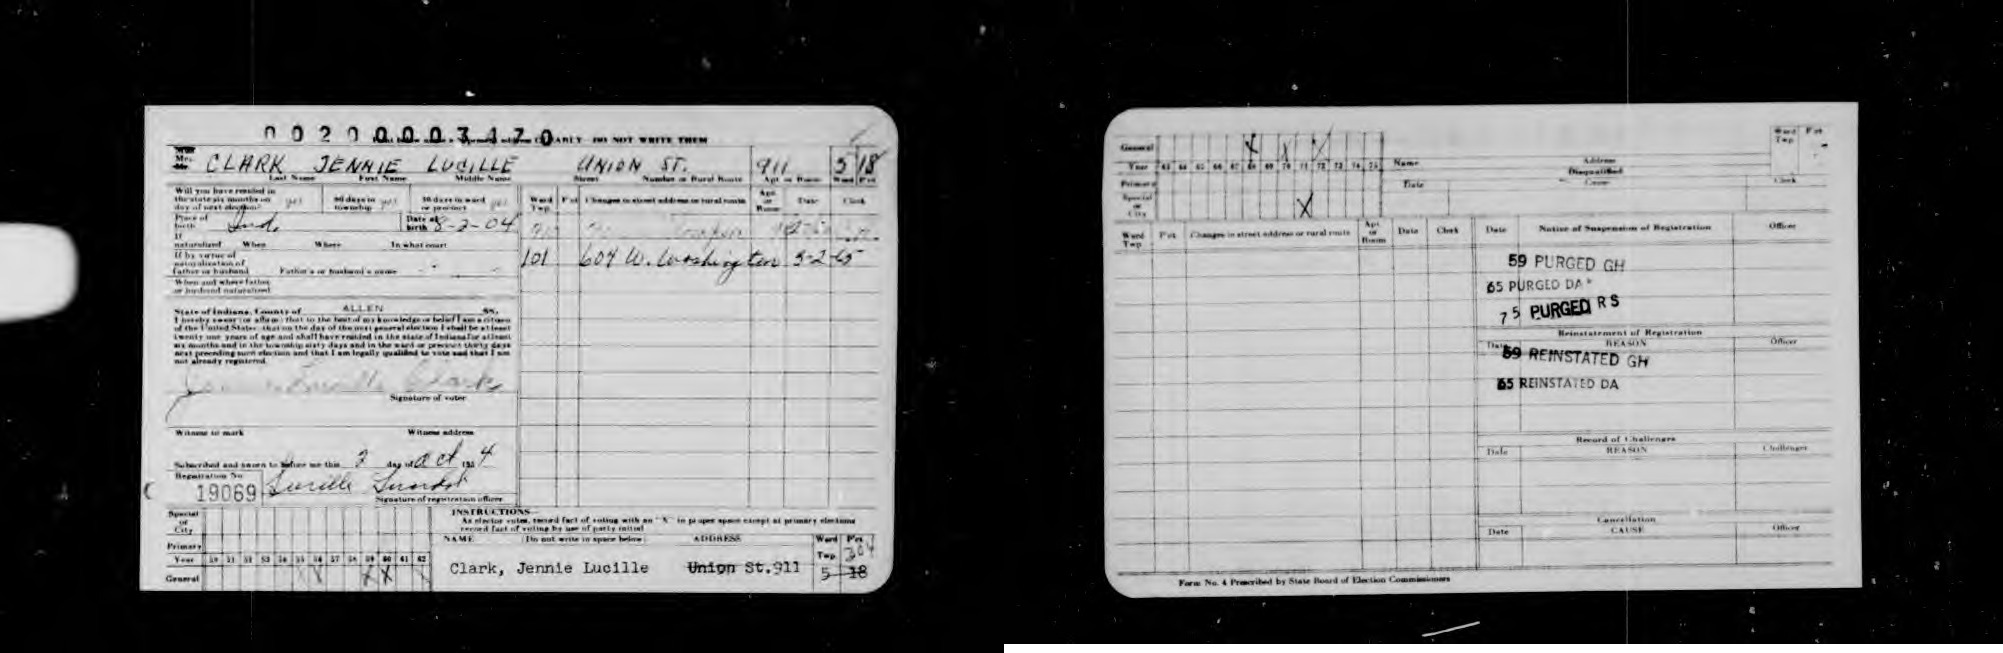 00200003470
EARLY - DO NOT WRITE THEM
Mrs. CLARK JENNIE LUCILLE UNION ST. 911 5 18
Last Name First Name Middle Name Street Number or Rural Route Apt. or Room Ward Pct
Will you have resided in the state six months on day of next election? yes 60 days in township yes 30 days in ward or precinct yes
Ward Twp. Pct Changes in street address or rural route Apt. or Room Date Clerk
Place of birth Ind. Date of birth 8-2-04
If naturalized When Where In what court
101 604 W. Washington 3-2-65
If by virtue of naturalization of father or husband Father's or husband's name
When and where father or husband naturalized
State of Indiana, County of ALLEN SS.
I hereby swear (or affirm) that to the best of my knowledge or belief I am a citizen
of the United States; that on the day of the next general election I shall be at least
twenty one years of age and shall have resided in the state of Indiana for at least
six months and in the township sixty days and in the ward or precinct thirty days
next preceding such election and that I am legally qualified to vote and that I am
not already registered.
Lucille Clark
Signature of voter
Witness to mark Witness address
Subscribed and sworn to before me this 2 day of Oct 1954
Registration No.
19069 Lucille
Signature of registration officer
Special or City
INSTRUCTIONS
As elector votes, record fact of voting with an "X" in proper space except at primary elections
record fact of voting by use of party initial
Primary
NAME (Do not write in space below) ADDRESS Ward Twp. Pct
304
Year 50 51 52 53 54 55 56 57 58 59 60 61 62
Clark, Jennie Lucille Union St.911 5 18
General X X
General X X
Year 63 64 65 66 67 68 69 70 71 72 73 74 75 Name Address Ward Twp. Pct
Disqualified
Primary Date Cause Clerk
Special or City X
Ward Twp. Pct Changes in street address or rural route Apt. or Room Date Clerk
Date Notice of Suspension of Registration Officer
59 PURGED GH
65 PURGED DA
75 PURGED RS
Reinstatement of Registration
Date REASON Officer
59 REINSTATED GH
65 REINSTATED DA
Record of Challenges
Date REASON Challenger
Cancellation
Date CAUSE Officer
Form No. 4 Prescribed by State Board of Election Commissioners